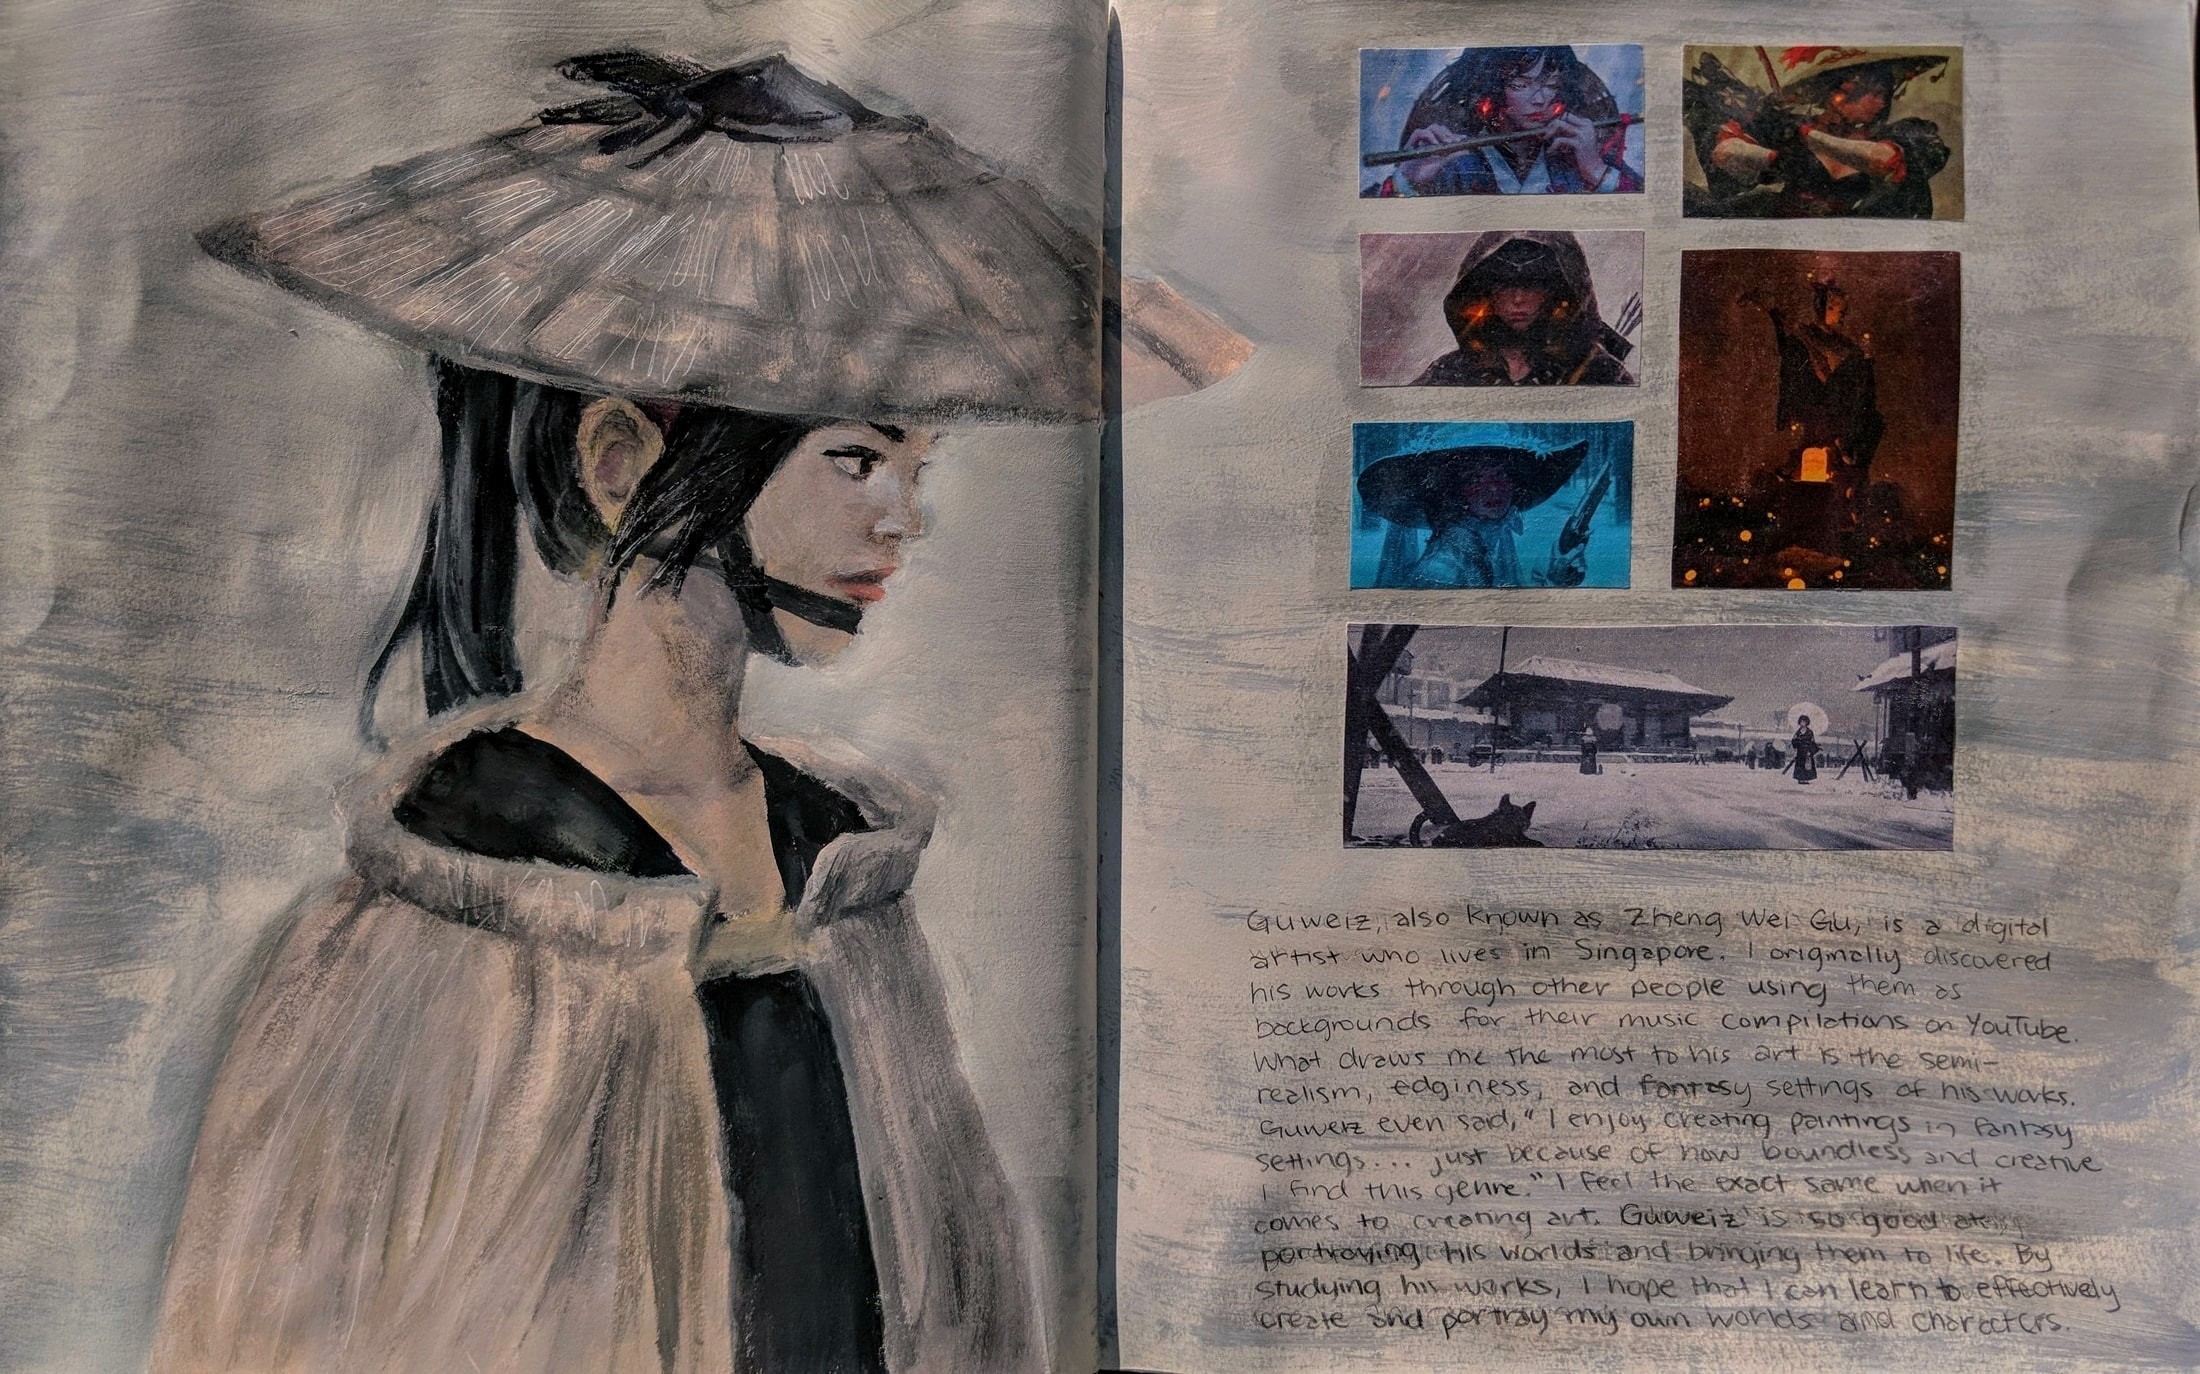 Guweiz, also known as Zheng Wei Gu, is a digital
artist who lives in Singapore. I originally discovered
his works through other people using them as
backgrounds for their music compilations on YouTube.
What draws me the most to his art is the semi-
realism, edginess, and fantasy settings of his works.
Guweiz even said, "I enjoy creating paintings in fantasy
settings... just because of how boundless and creative
I find this genre." I feel the exact same when it
comes to creating art. Guweiz is so good at
portraying his worlds and bringing them to life. By
studying his works, I hope that I can learn to effectively
create and portray my own worlds and characters.